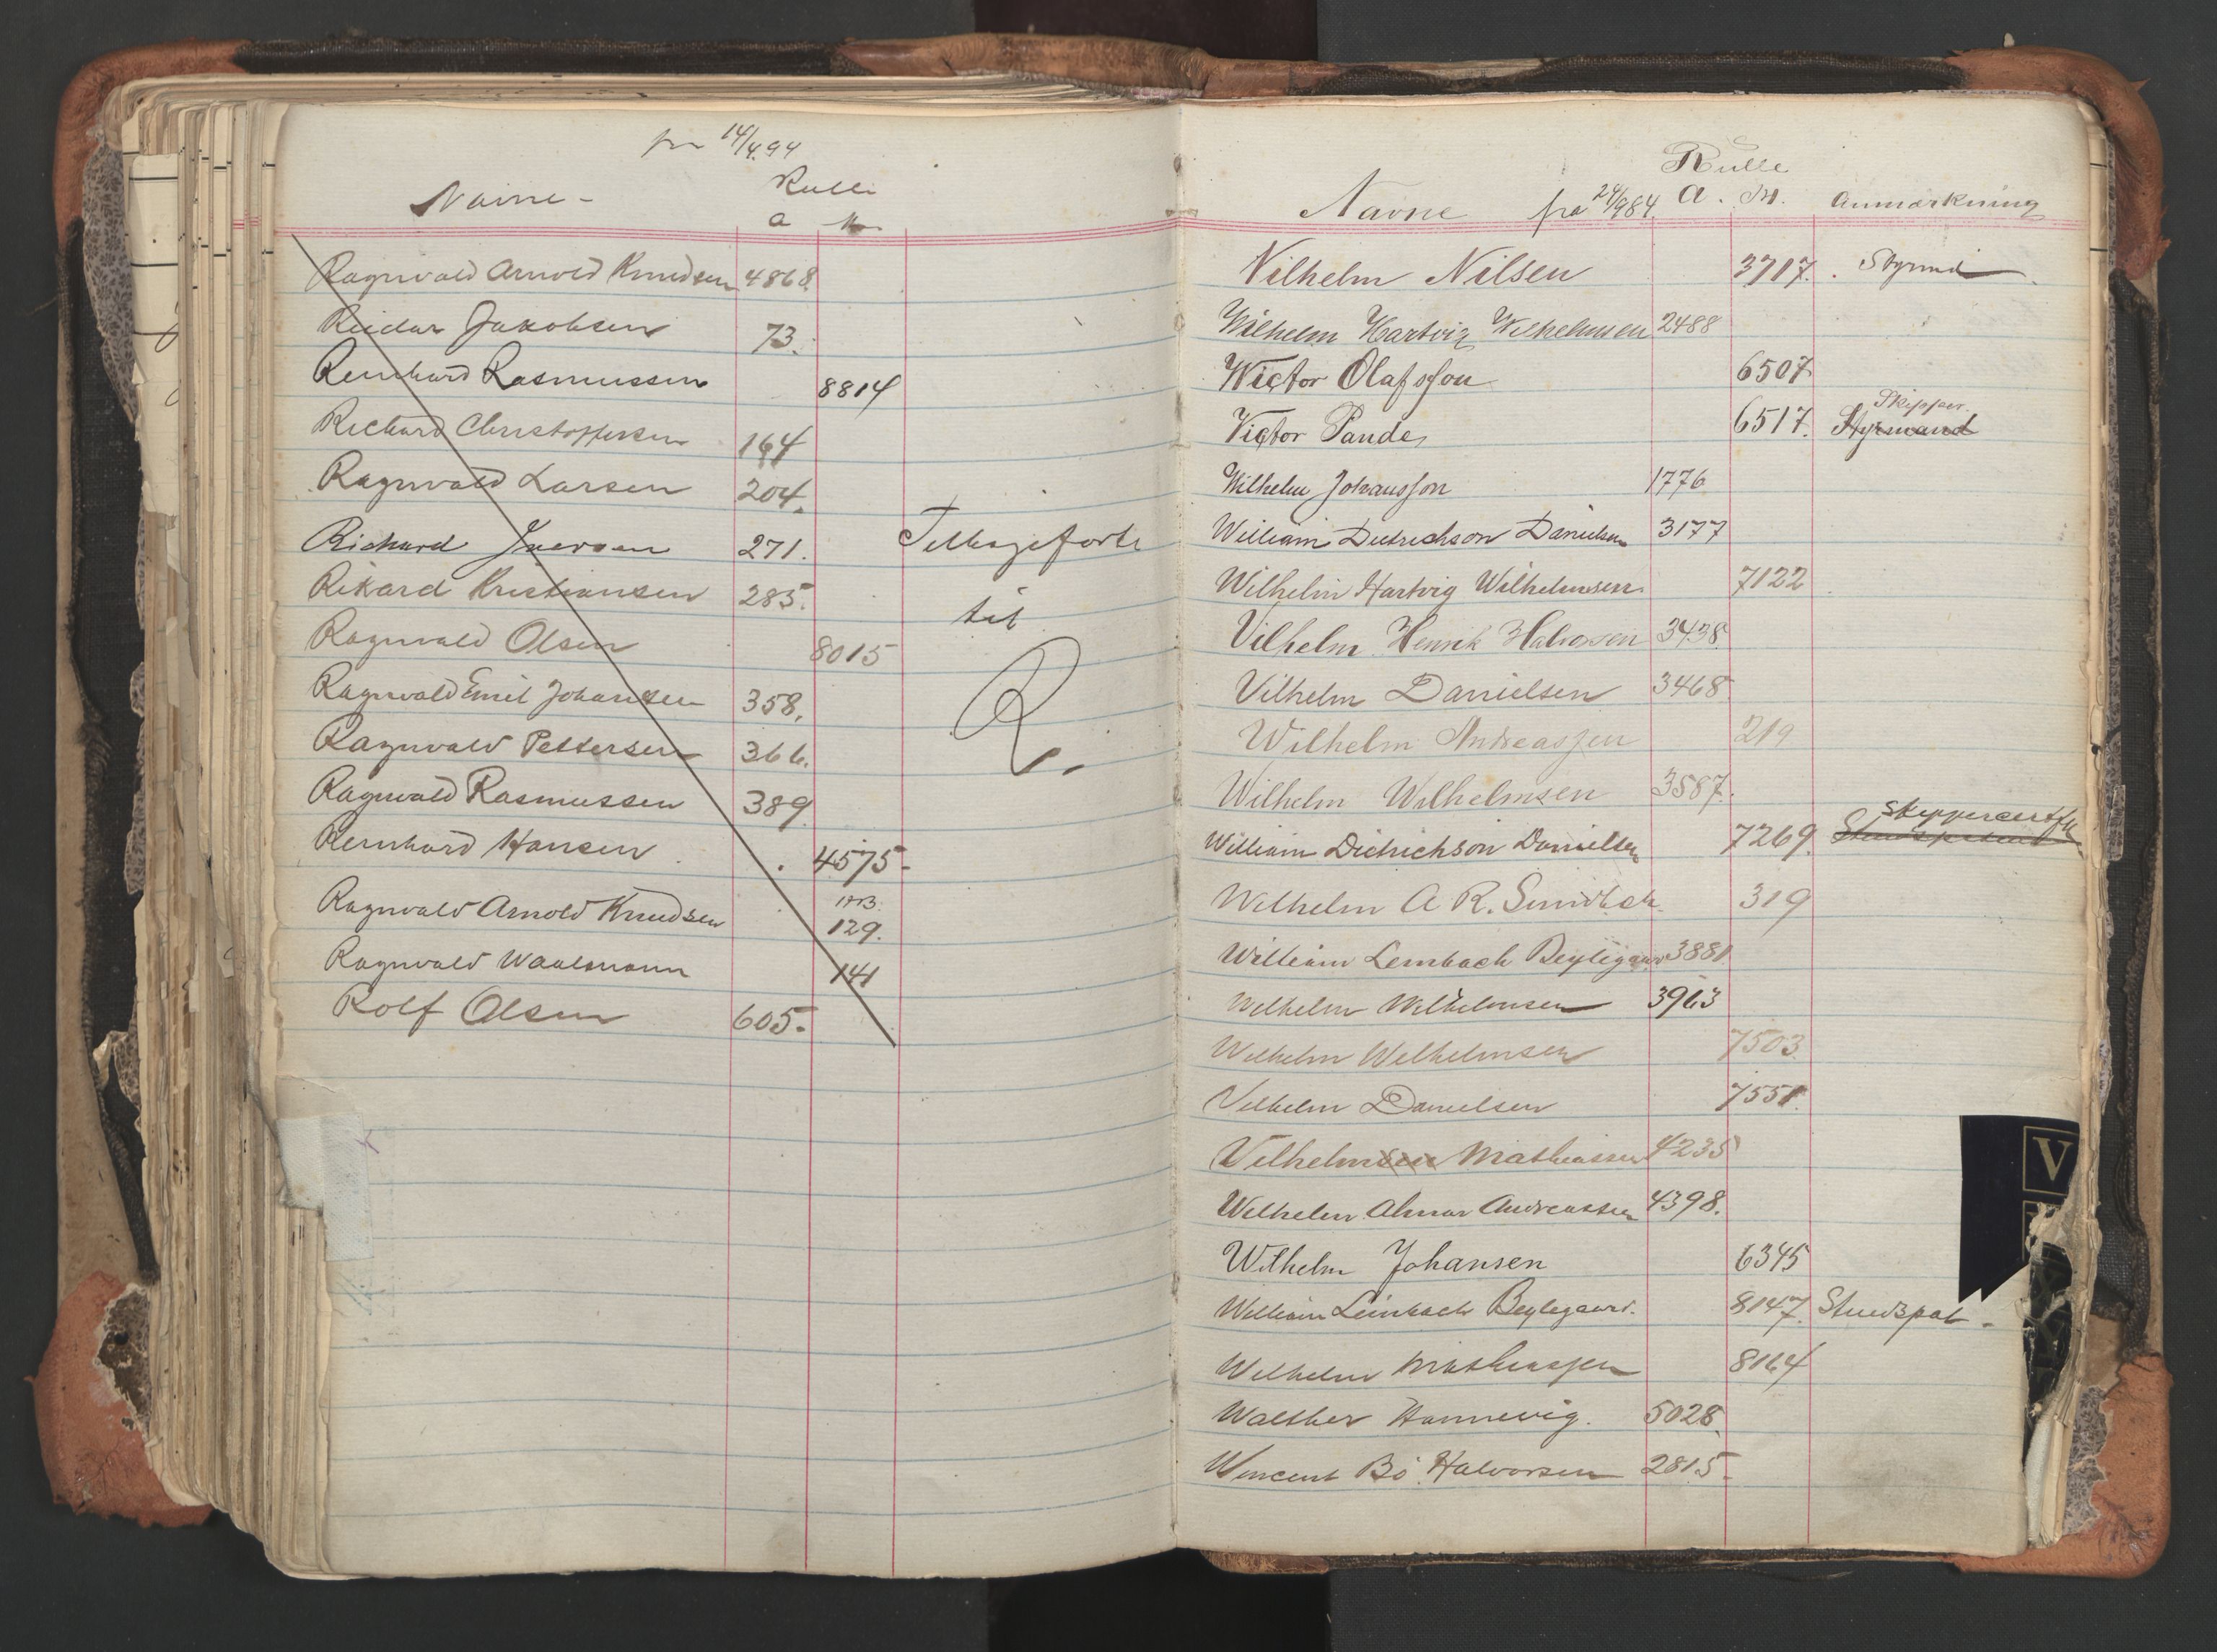 fra 14/4 94
Navne - Rulle
a M.
Ragnvald Arnold Knudsen 4868.
Reidar Jakobsen 73.
Reinhard Rasmussen 8814
Richard Christoffersen 164
Ragnvald Larsen 204.
Richard Iversen 271.
Rikard Kristiansen 285.
Ragnvald Olsen 8015
Ragnvald Emil Johansen 358.
Ragnvald Pettersen 366.
Ragnvald Rasmussen 389
Reinhard Hansen 4575-
Ragnvald Arnold Knudsen 129.
Ragnvald Waalmann 141
Rolf Olsen 605.
Tilbageførte
til
R.
Rulle
Navne fra 24/9 84. a. M. Anmærkning
Vilhelm Nilsen 3717. Styrmd
Wilhelm Hartvig Wilhelmsen 2488
Victor Olafsson 6507
Skipper
Victor Pande 6517. Styrmand
Wilhelm Johansson 1776
William Dietrichson Danielsen 3177
Wilhelm Hartvig Wilhelmsen 7122
Vilhelm Henrik Halvorsen 3438.
Vilhelm Danielsen 3468
Wilhelm Andreassen 219
Wilhelm Wilhelmsen 3587.
Skippercertf
William Dietrichson Danielsen 7269.
Wilhelm A R. 319
William Leinbach Beylegaard 3881.
Wilhelm Wilhelmsen 3963
Wilhelm Wilhelmsen 7503.
Vilhelm Danielsen 7551.
Vilhelmsen Mathiassen 4235
Wilhelm Almar Andreassen 4398.
Wilhelm Johansen 6345
William Leinbach Beylegaard. 8147. Stuedspat.
Wilhelm Mathiassen 8164
Walther Hannevig. 5028.
Vincent Bö Halvorsen 2815.
V